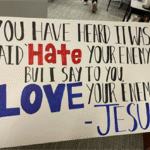 YOU HAVE HEARD IT WAS
SAID "Hate YOUR ENEMY
BUT I SAY TO YOU,
LOVE YOUR ENEM
-JESU